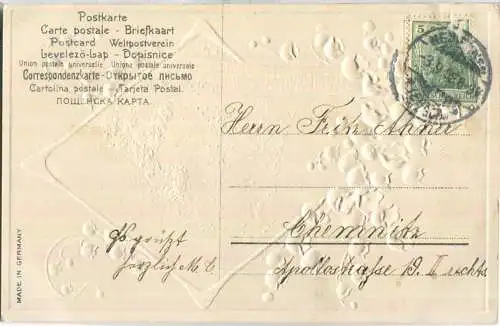 Postkarte
Carte postale - Briefkaart
Postcard Weltpostverein
Levelező-Lap - Dopisnice
Union postale universelle Unione postale universale
Correspondenzkarte - Открытое письмо
Cartolina postale - Tarjeta Postal.
ПОШЕРСКА КАРТА.
5 5
Herrn Fritz
Chemnitz
Apollostraße 19. II rechts
Es grüßt
herzlich M. C
MADE IN GERMANY